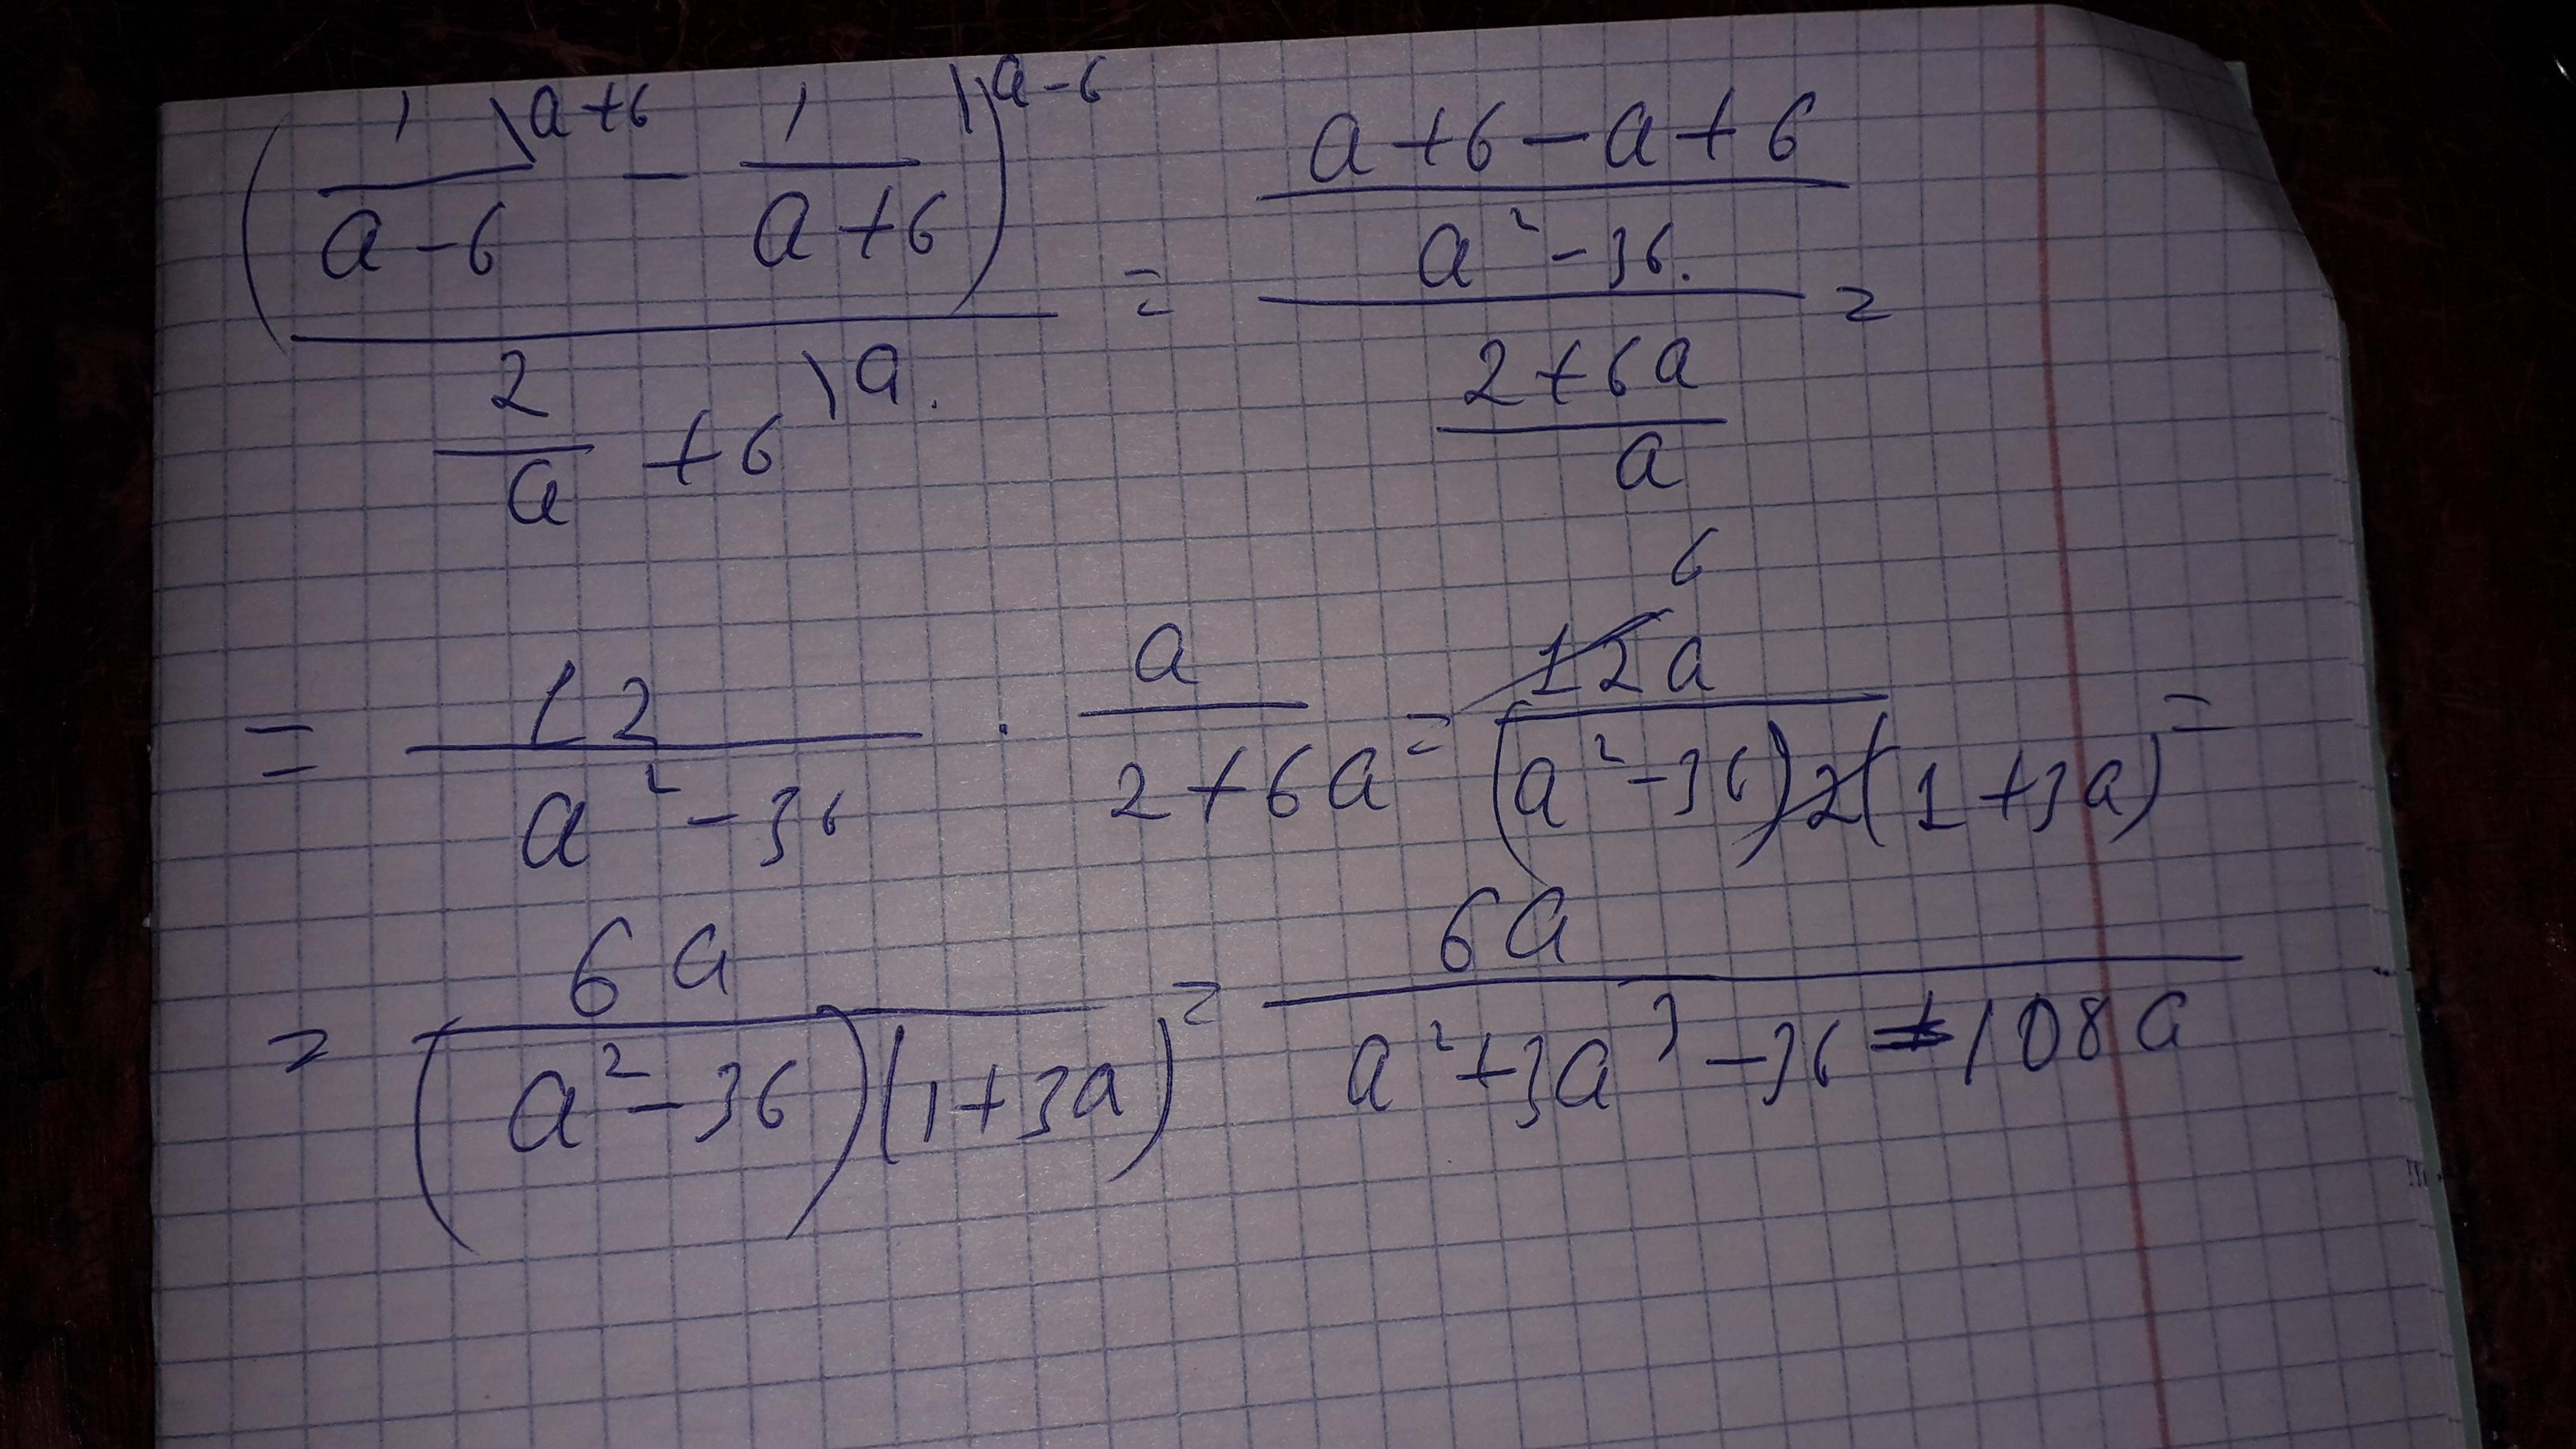 (1/(a-6) \a+6 - 1/(a+6) \a-6) / (2/a + 6 \a.) = ((a+6-a+6)/(a²-36.)) / ((2+6a)/a) =
= 12/(a²-36) · a/(2+6a) = 12a/((a²-36)2(1+3a)) = 6
= 6a/((a²-36)(1+3a)) = 6a/(a²+3a³-36-108a)